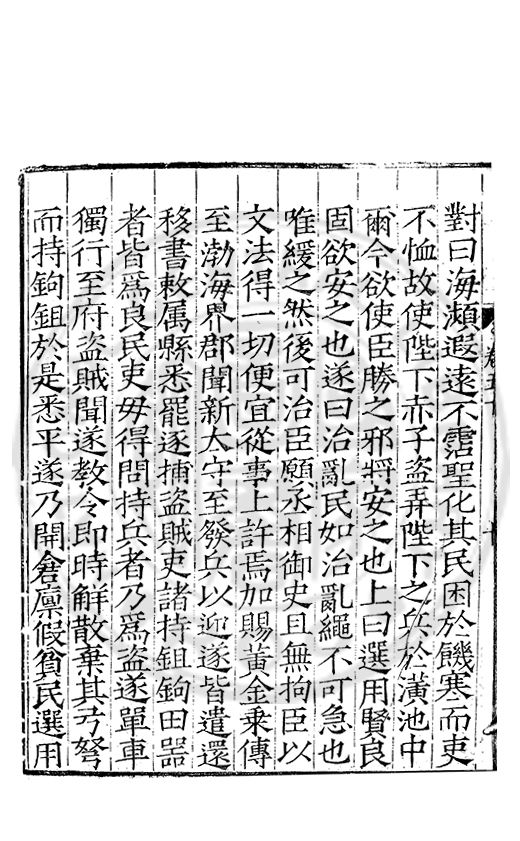 對曰海瀕遐遠不霑聖化其民困於饑寒而吏
不恤故使陛下赤子盜弄陛下之兵於潢池中
爾今欲使臣勝之邪將安之也上曰選用賢良
固欲安之也遂曰治亂民如治亂繩不可急也
唯緩之然後可治臣願丞相御史且無拘臣以
文法得一切便宜從事上許焉加賜黃金乘傳
至渤海界郡聞新太守至發兵以迎遂皆遣還
移書敕属縣悉罷逐捕盜賊吏諸持鉏鉤田噐
者皆爲良民吏毋得問持兵者乃爲盜遂單車
獨行至府盜賊聞遂教令即時解散棄其弓弩
而持鉤鉏於是悉平遂乃開倉廪假貧民選用